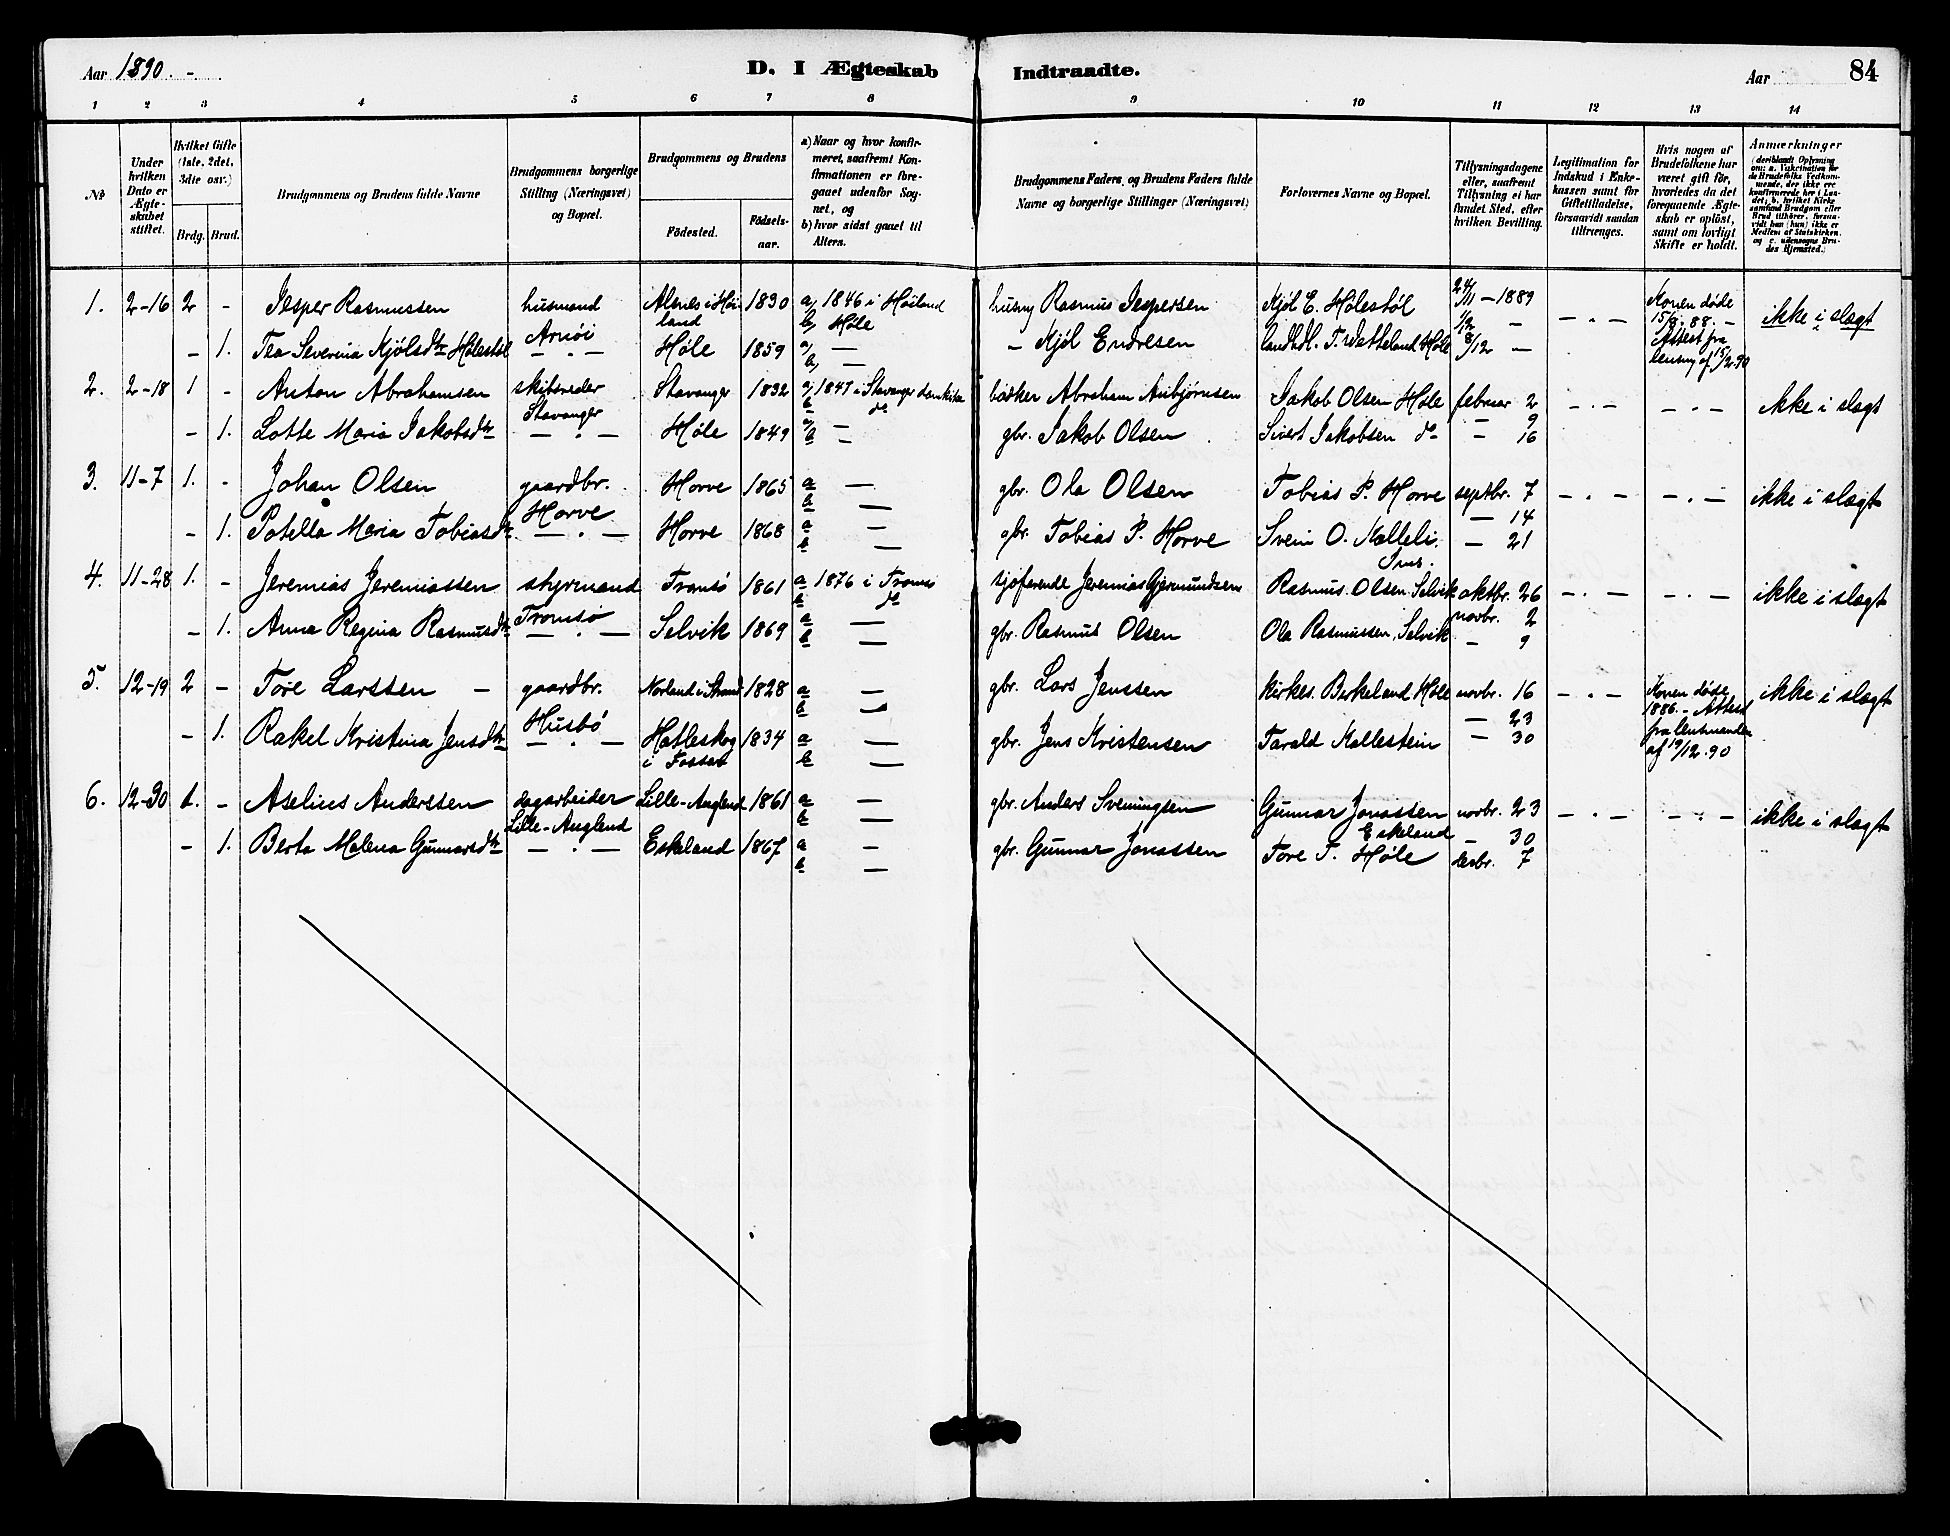 Aar 1890. -
D. I Ægteskab Indtraadte.
Aar
84
1 2 3 4 5 6 7 8 9 10 11 12 13 14
No.
Under hvilken Dato er Ægteskabet stiftet.
Hvilket Gifte (1ste, 2det, 3die osv.)
Brdg. Brud.
Brudgommens og Brudens fulde Navne
Brudgommens borgerlige Stilling (Næringsvei) og Bopæl.
Brudgommens og Brudens
Födested.
Födsels-aar.
a) Naar og hvor konfirmeret, saafremt Konfirmationen er foregaaet udenfor Sognet, og
b) hvor sidst gaaet til Alters.
Brudgommens Faders, og Brudens Faders fulde Navne og borgerlige Stillinger (Næringsvei)
Forlovernes Navne og Bopæl.
Tillysningsdagene eller, saafremt Tillysning ei har fundet Sted, efter hvilken Bevilling.
Legitimation for Indskud i Enkekassen samt for Giftetilladelse, forsaavidt saadan tiltrænges.
Hvis nogen af Brudefolkene har været gift för, hvorledes da det foregaaende Ægteskab er oplöst, samt om lovligt Skifte er holdt.
Anmærkninger
(deriblandt Oplysning om: a. Vakcination for de Brudefolks Vedkommende, der ikke ere konfirmerede her i Landet; b. hvilket Kirkesamfund Brudgom eller Brud tilhörer, forsaavidt han (hun) ikke er Medlem af Statskirken, og c. udensogns Brudes Hjemsted.)
1. 2-16 2 - Jesper Rasmussen husmand Alsnes i Höiland 1830 a, 1846 i Höiland husmd Rasmus Jespersen Kjöl E. Hölestöl 24/11 - 1889 - . - Konen döde 15/8. 88. - Attest fra lensmd af 15/2.90 ikke i slægt
Arnöi b, Höle 1/12 -
- 1. Tea Severina Kjölsdtr Hölestöl - . - Höle 1859 a, - b, - - Kjöl Endresen landhdl. T. Vetteland Höle 8/12 -
2. 2-18 1 - Anton Abrahamsen skibsreder Stavanger 1832 a, 1847 i Stavanger domkirke bödker Abraham Asbjörnsen Jakob Olsen Höle februar 2 - . - - . - ikke i slægt
Stavanger b do - 9
- 1. Lotte Maria Jakobsdtr - . - Höle 1849 a - b - gbr. Jakob Olsen Sivert Jakobsen do - 16
3. 11-7 1. - Johan Olsen gaardbr. Horve 1865 a - b - gbr. Ola Olsen Tobias P. Horve septbr. 7 - . - - . - ikke i slægt
Horve - 14
- 1. Petella Maria Tobiasdtr - . - Horve 1868 a - b - gbr. Tobias P. Horve Svein O. Melleli. - 21
4. 11-28 1. - Jeremias Jeremiassen styrmand Tromsö 1861 a 1876 i Tromsö sjöfarende Jeremias Gjermundsen Rasmus Olsen Selvik oktbr. 26 - . - - . - ikke i slægt
Tromsö b do novbr. 2
- 1. Anna Regina Rasmusdtr - . - Selvik 1869 a - b - gbr. Rasmus Olsen Ola Rasmussen, Selvik - 9
5. 12-19 2 - Tore Larssen - gaardbr. Norland i Strand 1828 a - b - gbr. Lars Jenssen kirkes. Birkeland Höle novbr. 16 - . - Konen döde 1886. - Attest fra lensmanden af 19/12.90 ikke i slægt
Husbö - 23
- 1. Rakel Kristina Jensdtr - . - Hatleskog i Fossan 1834 a - b - gbr. Jens Kristensen Tarald Mallestein - 30
6. 12-30 1. - Aselius Anderssen dagarbeider Lille-Augland 1861 a - b - gbr. Anders Sveningsen Gunnar Jonassen Eskeland novbr. 23 - . - - . - ikke i slægt
Lille-Augland - 30
- 1. Berta Malena Gunnarsdtr - . - Eskeland 1867 a - b - gbr. Gunnar Jonassen Tore T. Höle desbr. 7